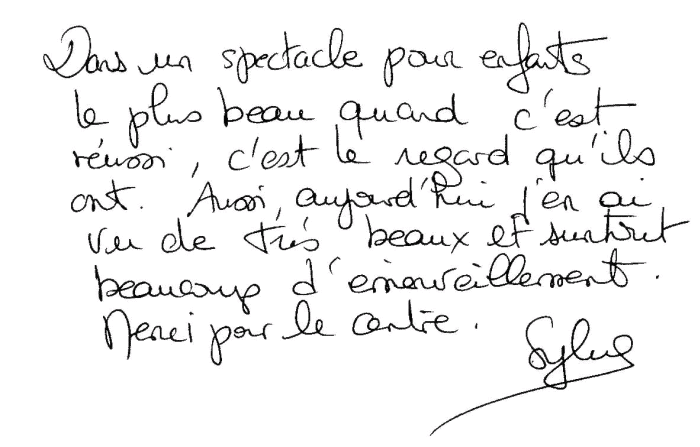 Dans un spectacle pour enfants
le plus beau quand c'est
réussi, c'est le regard qu'ils
ont. Aussi, aujourd'hui j'en ai
vu de très beaux et surtout
beaucoup d'émerveillement.
Merci pour le centre.
Sylvie